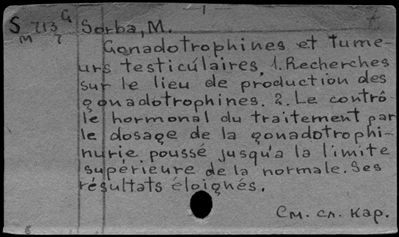 S 713 G Sorba, M.
M 7
Gonadotrophines et tume-
urs testiculaires. 1. Recherches
sur le lieu de production des
gonadotrophines. 2. Le contrô-
le hormonal du traitement par
le dosage de la gonadotrophi-
nurie poussé jusqu'a la limite
supérieure de la normale. Ses
résultats éloignés.
См. сл. кар.